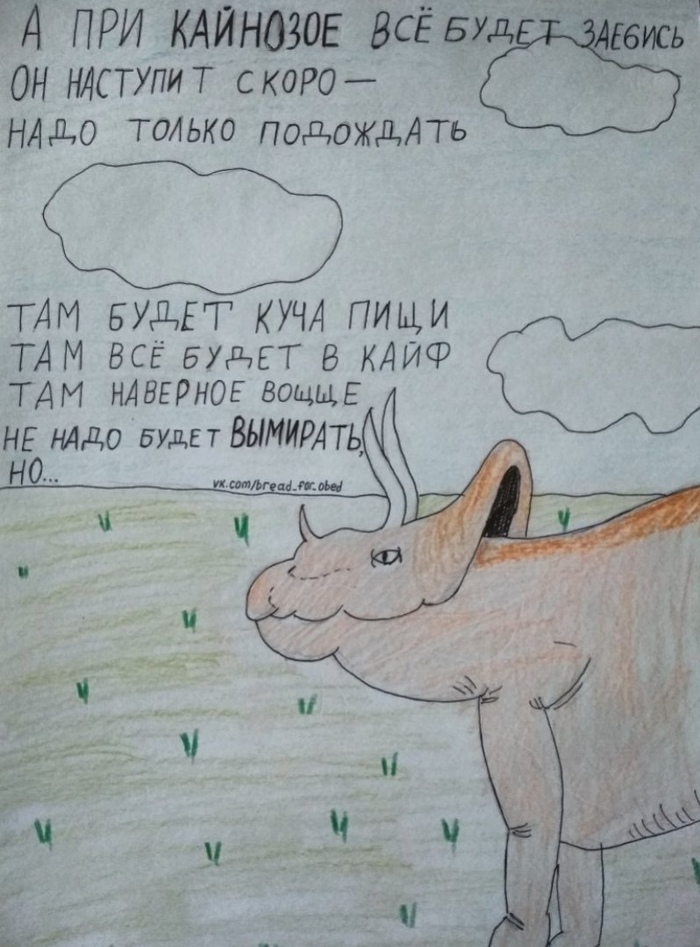 А ПРИ КАЙНОЗОЕ ВСЁ БУДЕТ ЗАЕБИСЬ
ОН НАСТУПИТ СКОРО —
НАДО ТОЛЬКО ПОДОЖДАТЬ
ТАМ БУДЕТ КУЧА ПИЩИ
ТАМ ВСЁ БУДЕТ В КАЙФ
ТАМ НАВЕРНОЕ ВОЩЩЕ
НЕ НАДО БУДЕТ ВЫМИРАТЬ,
НО...
vk.com/bread_for_obed